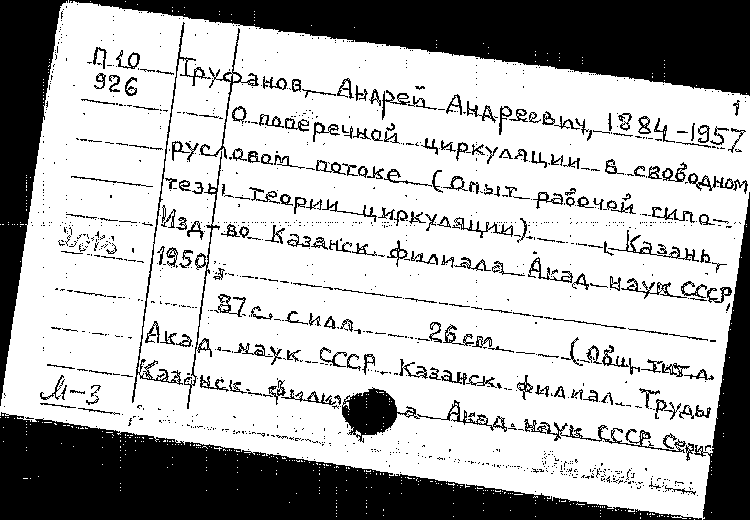 1
П 10 Труфанов, Андрей Андреевич, 1884-1957
926
О поперечной циркуляции в свободном
русловом потоке (опыт рабочей гипо-
тезы теории циркуляции). [Казань,
Изд-во Казанск. филиала Акад. наук СССР,
1950.
87 с. с илл. 26 см. (Общ. тит. л.
Акад. наук СССР. Казанск. филиал. Труды
Казанск. филиала Акад. наук СССР. Серия
М-3